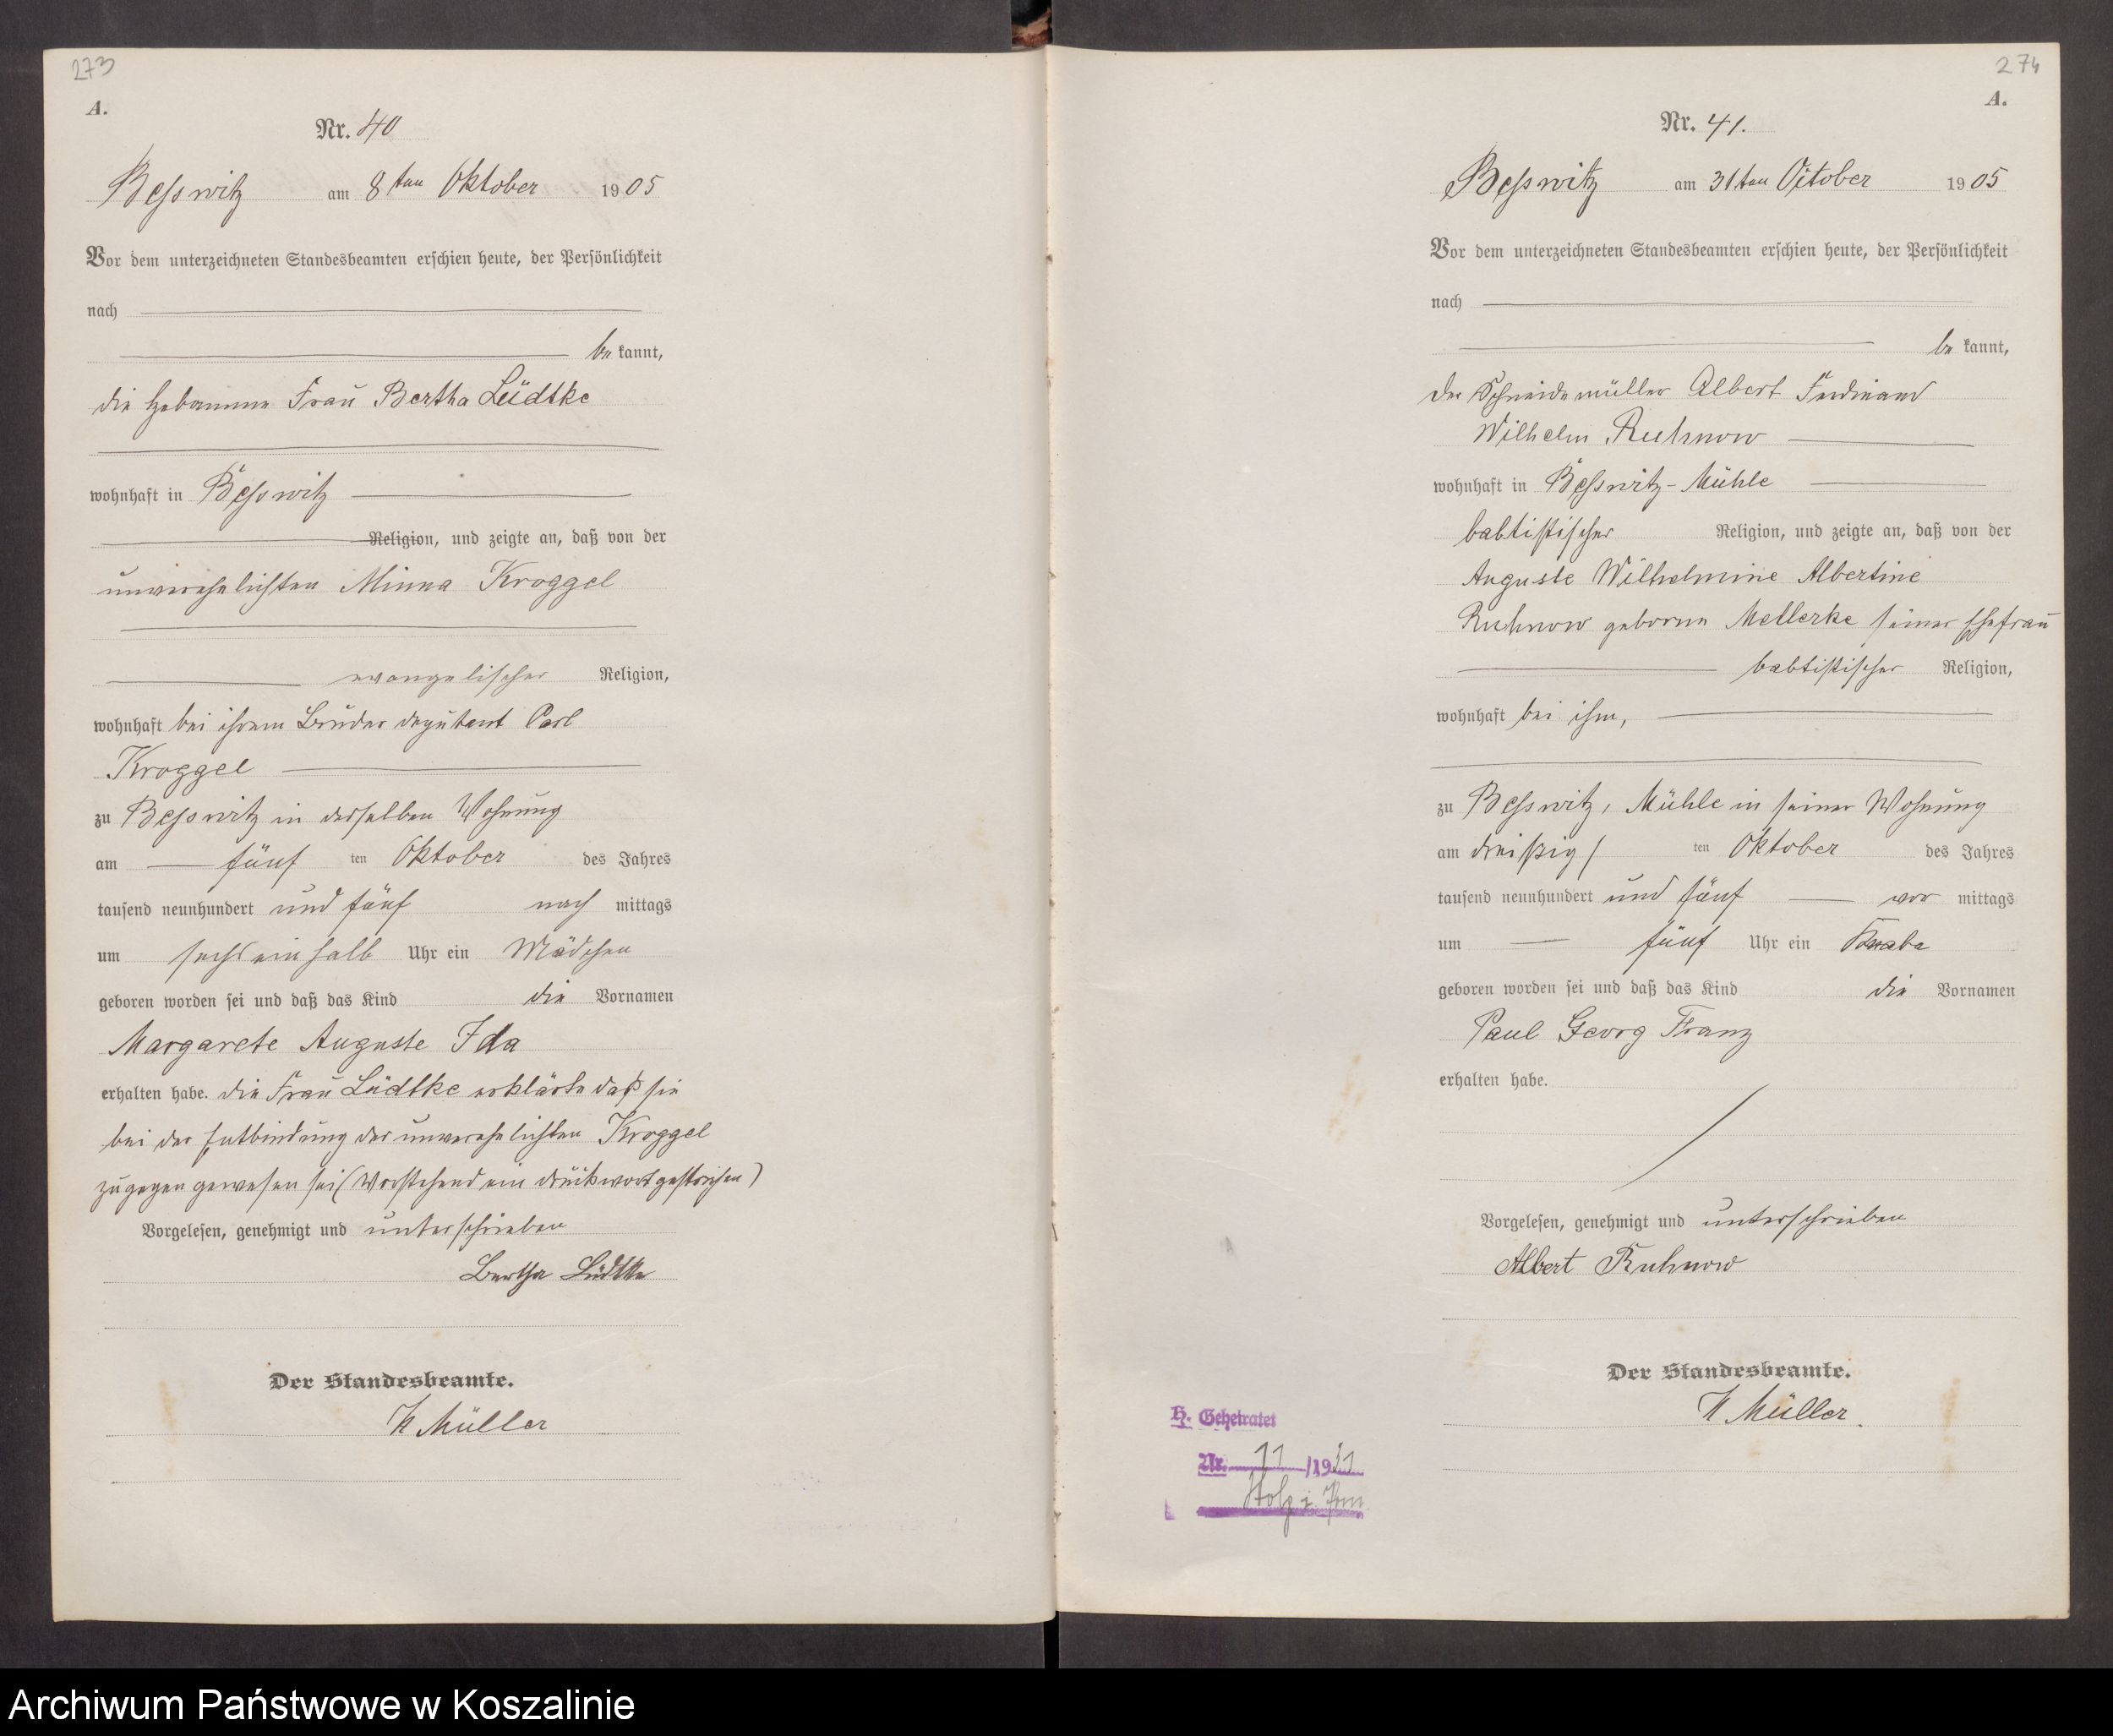 273
A.
Nr. 40
Beßwitz am 8ten Oktober 1905
Vor dem unterzeichneten Standesbeamten erschien heute, der Persönlichkeit
nach
be kannt,
die Hebamme Frau Bertha Lüdtke
wohnhaft in Beßwitz
Religion, und zeigte an, daß von der
unverehelichten Minna Kroggel
evangelischer Religion,
wohnhaft bei ihrem Bruder deputant Carl
Kroggel
zu Beßwitz in derselben Wohnung
am fünf ten Oktober des Jahres
tausend neunhundert und fünf nach mittags
um sechseinhalb Uhr ein Mädchen
geboren worden sei und daß das Kind die Vornamen
Margarete Auguste Ida
erhalten habe. die Frau Lüdtke erklärte daß sie
bei der Entbindung der unverehelichten Kroggel
zugegen gewesen sei (Vorstehend ein Druckwort gestrichen)
Vorgelesen, genehmigt und unterschrieben
Bertha Lüdtke
Der Standesbeamte.
H Müller
274
A.
Nr. 41.
Beßwitz am 31ten October 1905
Vor dem unterzeichneten Standesbeamten erschien heute, der Persönlichkeit
nach
be kannt,
der Schneidemüller Albert Ferdinand
Wilhelm Ruhnow
wohnhaft in Beßwitz-Mühle
babtistischer Religion, und zeigte an, daß von der
Auguste Wilhelmine Albertine
Ruhnow geborne Mellerke seiner Ehefrau
babtistischer Religion,
wohnhaft bei ihm,
zu Beßwitz, Mühle in seiner Wohnung
am dreißig ten Oktober des Jahres
tausend neunhundert und fünf vor mittags
um fünf Uhr ein Knabe
geboren worden sei und daß das Kind die Vornamen
Paul Georg Franz
erhalten habe.
Vorgelesen, genehmigt und unterschrieben
Albert Ruhnow
Der Standesbeamte.
H Müller.
H. Geheiratet
Nr. 11 /1931
Stolp i. Pom
Archiwum Państwowe w Koszalinie